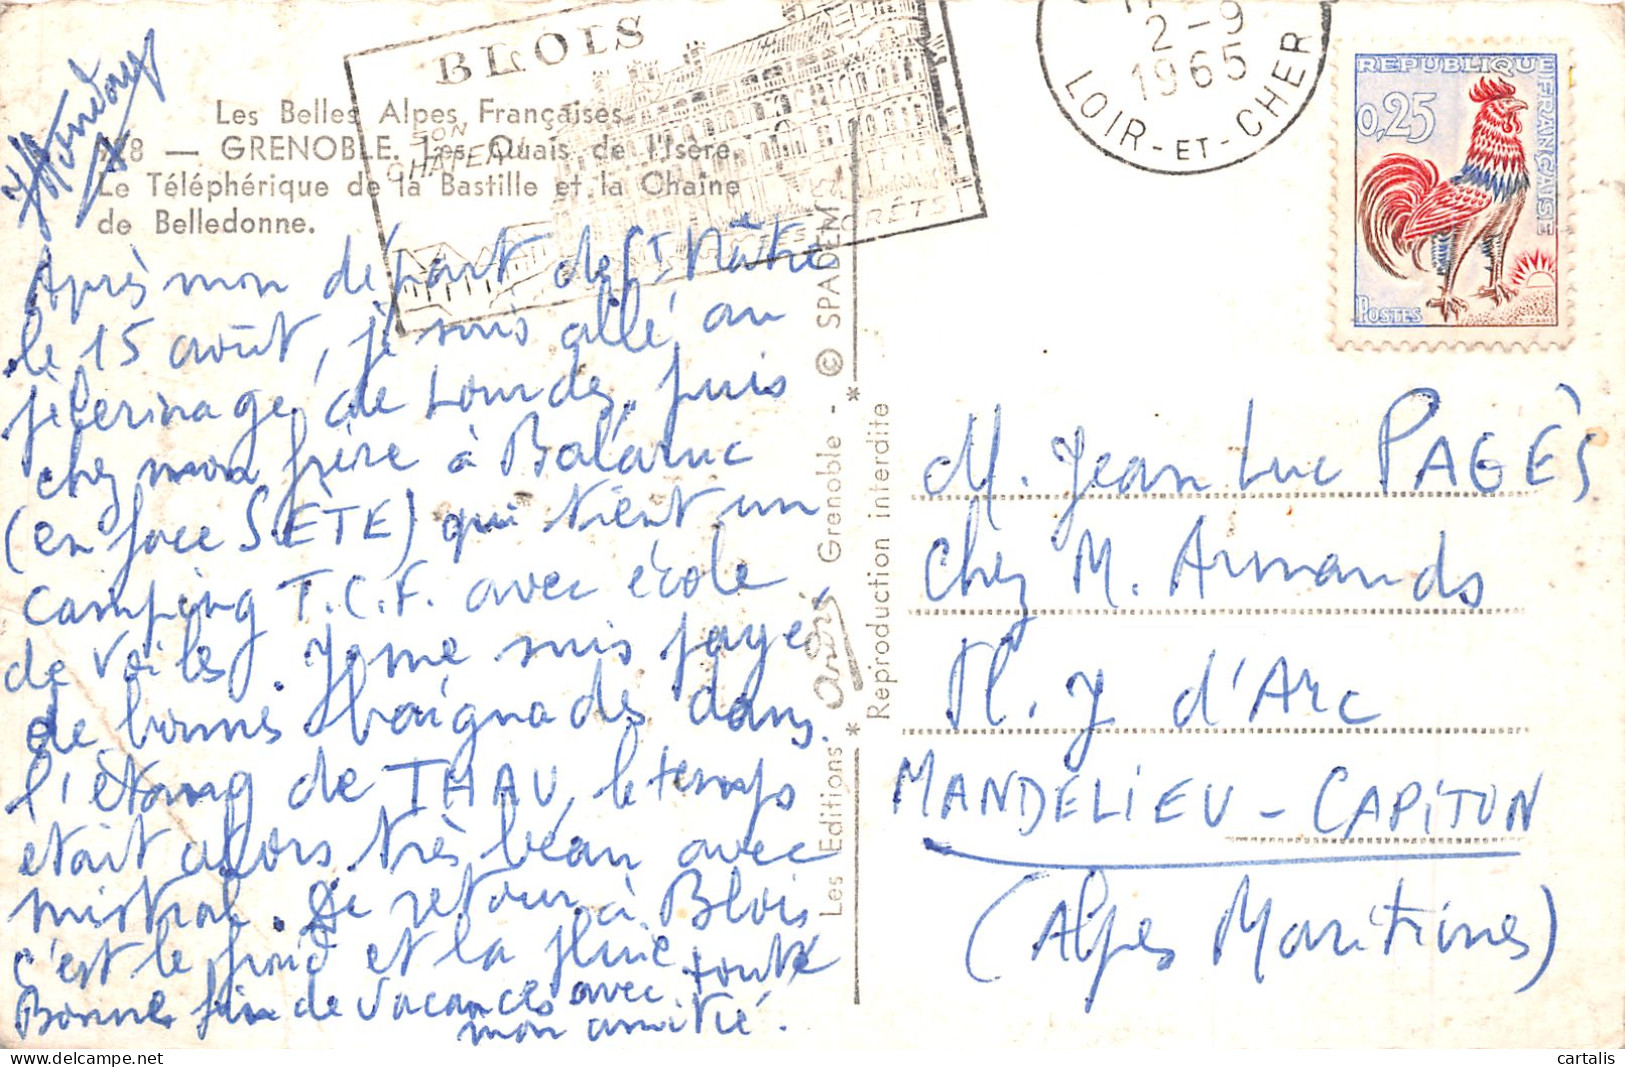 BLOIS
SON
CHATEAU
FORÊTS
2-9
1965
LOIR-ET-CHER
REPUBLIQUE FRANÇAISE
0,25
POSTES
Les Belles Alpes Françaises
8 — GRENOBLE. Les Quais de l'Isère.
Le Téléphérique de la Bastille et la Chaîne
de Belledonne.
Après mon départ de St Mâtre
le 15 août, je suis allé au
pélerinage de Lourdes, puis
chez mon frère à Balaruc
(en face SÈTE) qui tient un
camping T.C.F. avec école
de voiles. Je me suis payé
de bonnes baignades dans
l'étang de THAU, le temps
était alors très beau avec
mistral. De retour à Blois
c'est le froid et la pluie
Bonne fin de vacances avec toute
mon amitié.
Les Editions * André Grenoble - © SPADEM *
Reproduction interdite
M. Jean Luc PAGÈS
chez M. Armands
Pl. J d'Arc
MANDELIEU - CAPITON
(Alpes Maritimes)
cartalis